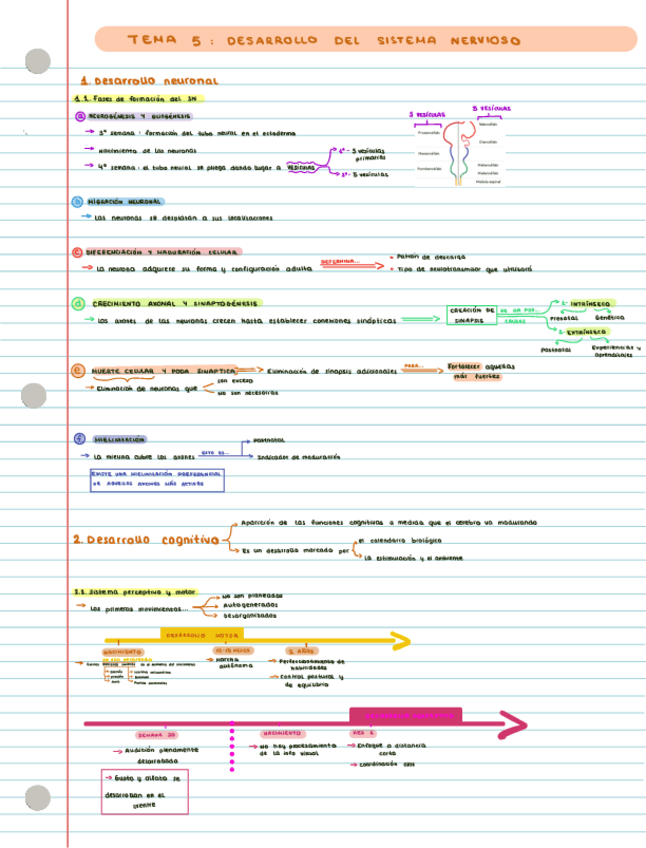 TEMA 5: DESARROLLO DEL SISTEMA NERVIOSO
1. Desarrollo neuronal
1.1. Fases de formación del SN
a NEUROGÉNESIS Y GLIOGÉNESIS
→ 3ª semana: formación del tubo neural en el ectodermo
→ Nacimiento de las neuronas
→ 4ª semana: el tubo neural se pliega dando lugar a VESÍCULAS
1º- 3 vesículas primarias
2º- 5 vesículas
3 VESÍCULAS
5 VESÍCULAS
b MIGRACIÓN NEURONAL
→ Las neuronas se desplazan a sus localizaciones
c DIFERENCIACIÓN Y MADURACIÓN CELULAR
→ La neurona adquiere su forma y configuración adulta
DETERMINA...
• Patrón de descarga
• Tipo de neurotransmisor que utilizará
d CRECIMIENTO AXONAL Y SINAPTOGÉNESIS
→ Los axones de las neuronas crecen hasta establecer conexiones sinápticas
CREACIÓN DE SINAPSIS
1- INTRÍNSECA
Prenatal
Genética
2- EXTRÍNSECA
Postnatal
Experiencias y aprendizajes
e MUERTE CELULAR Y PODA SINÁPTICA
Eliminación de sinapsis adicionales
PARA...
Fortalecer aquellas más fuertes
→ Eliminación de neuronas que
son exceso
no son necesarias
f MIELINIZACIÓN
→ La mielina cubre los axones
ESTO ES...
Postnatal
Indicador de maduración
EXISTE UNA MIELINIZACIÓN PREFERENCIAL
DE AQUELLOS AXONES MÁS ACTIVOS
2. Desarrollo cognitivo
Aparición de las funciones cognitivas a medida que el cerebro va madurando
Es un desarrollo marcado por
el calendario biológico
la estimulación y el ambiente
2.1. Sistema perceptivo y motor
→ Los primeros movimientos...
No son planeados
Autogenerados
Desorganizados
DESARROLLO MOTOR
NACIMIENTO
12-18 MESES
→ Marcha autónoma
2 AÑOS
→ Perfeccionamiento de habilidades
→ Control postural y de equilibrio
SEMANA 28
→ Audición plenamente desarrollada
→ Gusto y olfato se desarrollan en el vientre
NACIMIENTO
→ No hay procesamiento de la info visual
MES 2
→ Enfoque a distancia corta
→ Coordinación